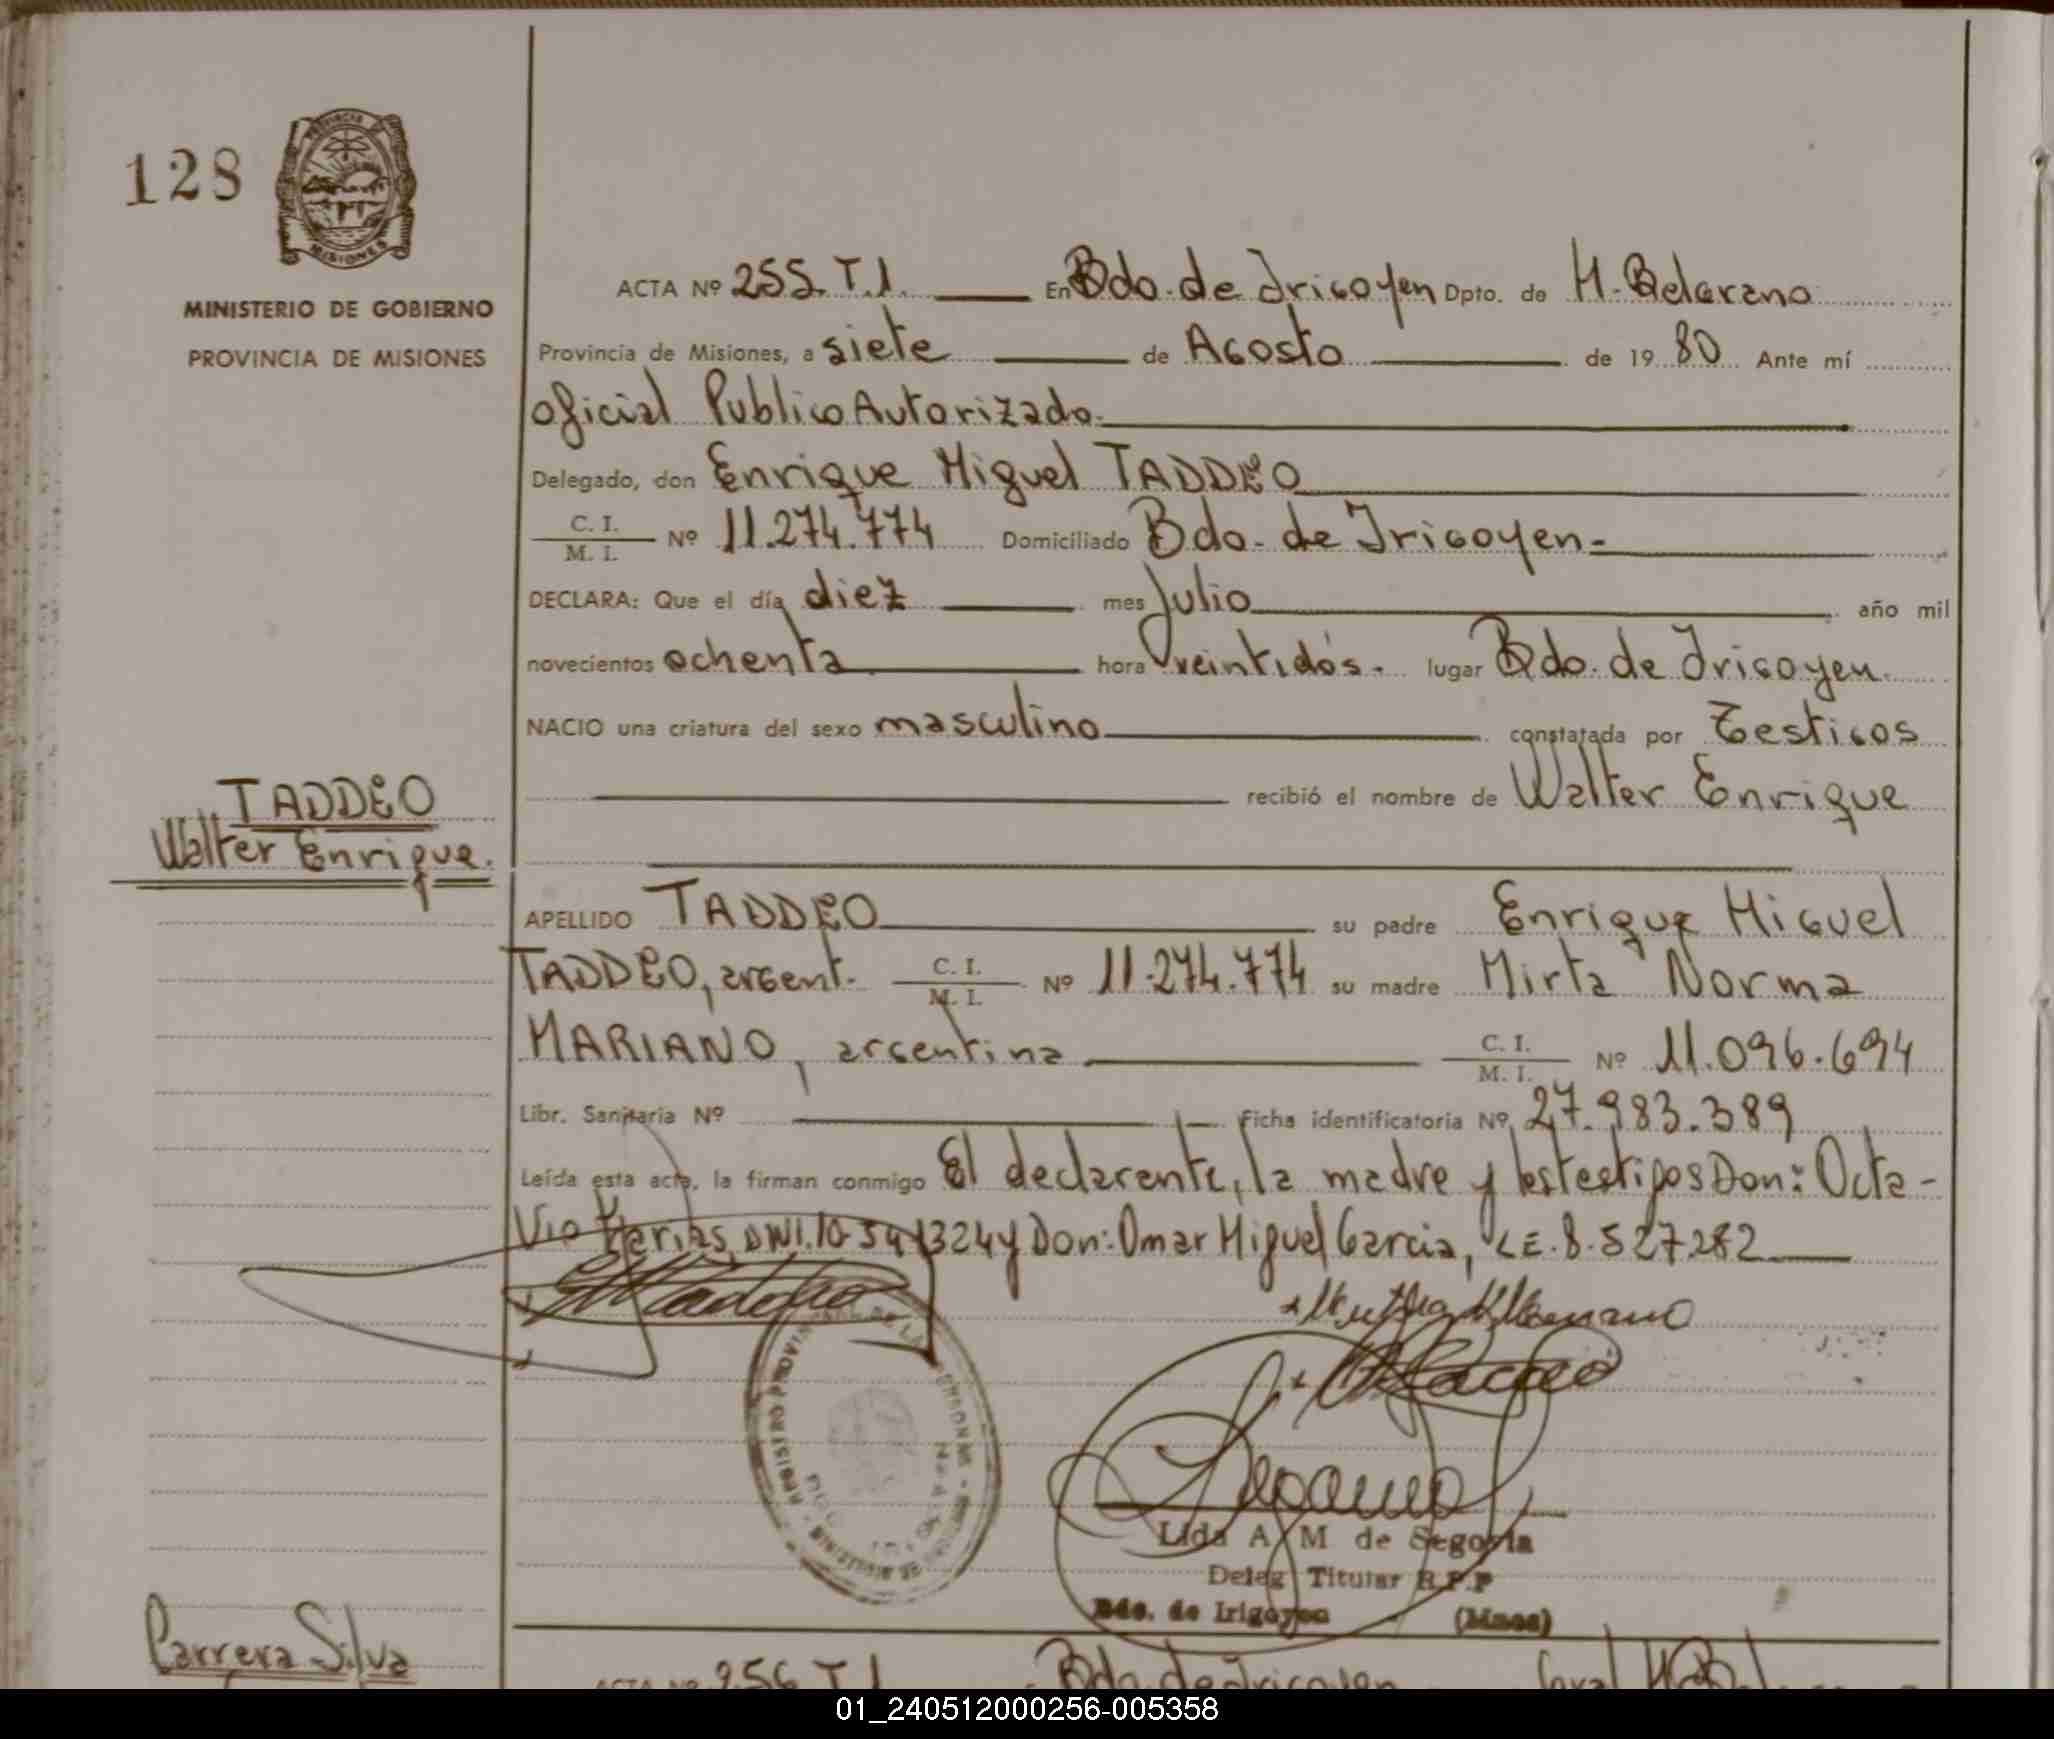 128
PROVINCIA
MISIONES
MINISTERIO DE GOBIERNO
PROVINCIA DE MISIONES
ACTA Nº 255. T. 1. En Bdo. de Irigoyen Dpto. de M. Belgrano
Provincia de Misiones, a siete de Agosto de 19 80 Ante mí
oficial Publico Autorizado.
Delegado, don Enrique Miguel TADDEO
C. I.
M. I. Nº 11.274.774 Domiciliado Bdo. de Irigoyen.-
DECLARA: Que el día diez mes Julio año mil
novecientos ochenta hora veintidós. lugar Bdo. de Irigoyen.
NACIO una criatura del sexo masculino constatada por Testigos
recibió el nombre de Walter Enrique
TADDEO
Walter Enrique.
APELLIDO TADDEO su padre Enrique Miguel
TADDEO, argent. C. I. M. I. Nº 11.274.774 su madre Mirta Norma
MARIANO, argentina C. I. M. I. Nº 11.096.694
Libr. Sanitaria Nº Ficha identificatoria Nº 27.983.389
Leída esta acta, la firman conmigo El declarante, la madre y los testigos Don: Octa-
vio DNI. 10. y Don: Omar Miguel Garcia, LE. 8.527.282
Lida A M de Segovia
Deleg Titular R.P.P
Bdo. de Irigoyen (Mnes)
Carrera Silva
ACTA Nº 256 T 1 Bdo. de Irigoyen Gral M B
01_240512000256-005358